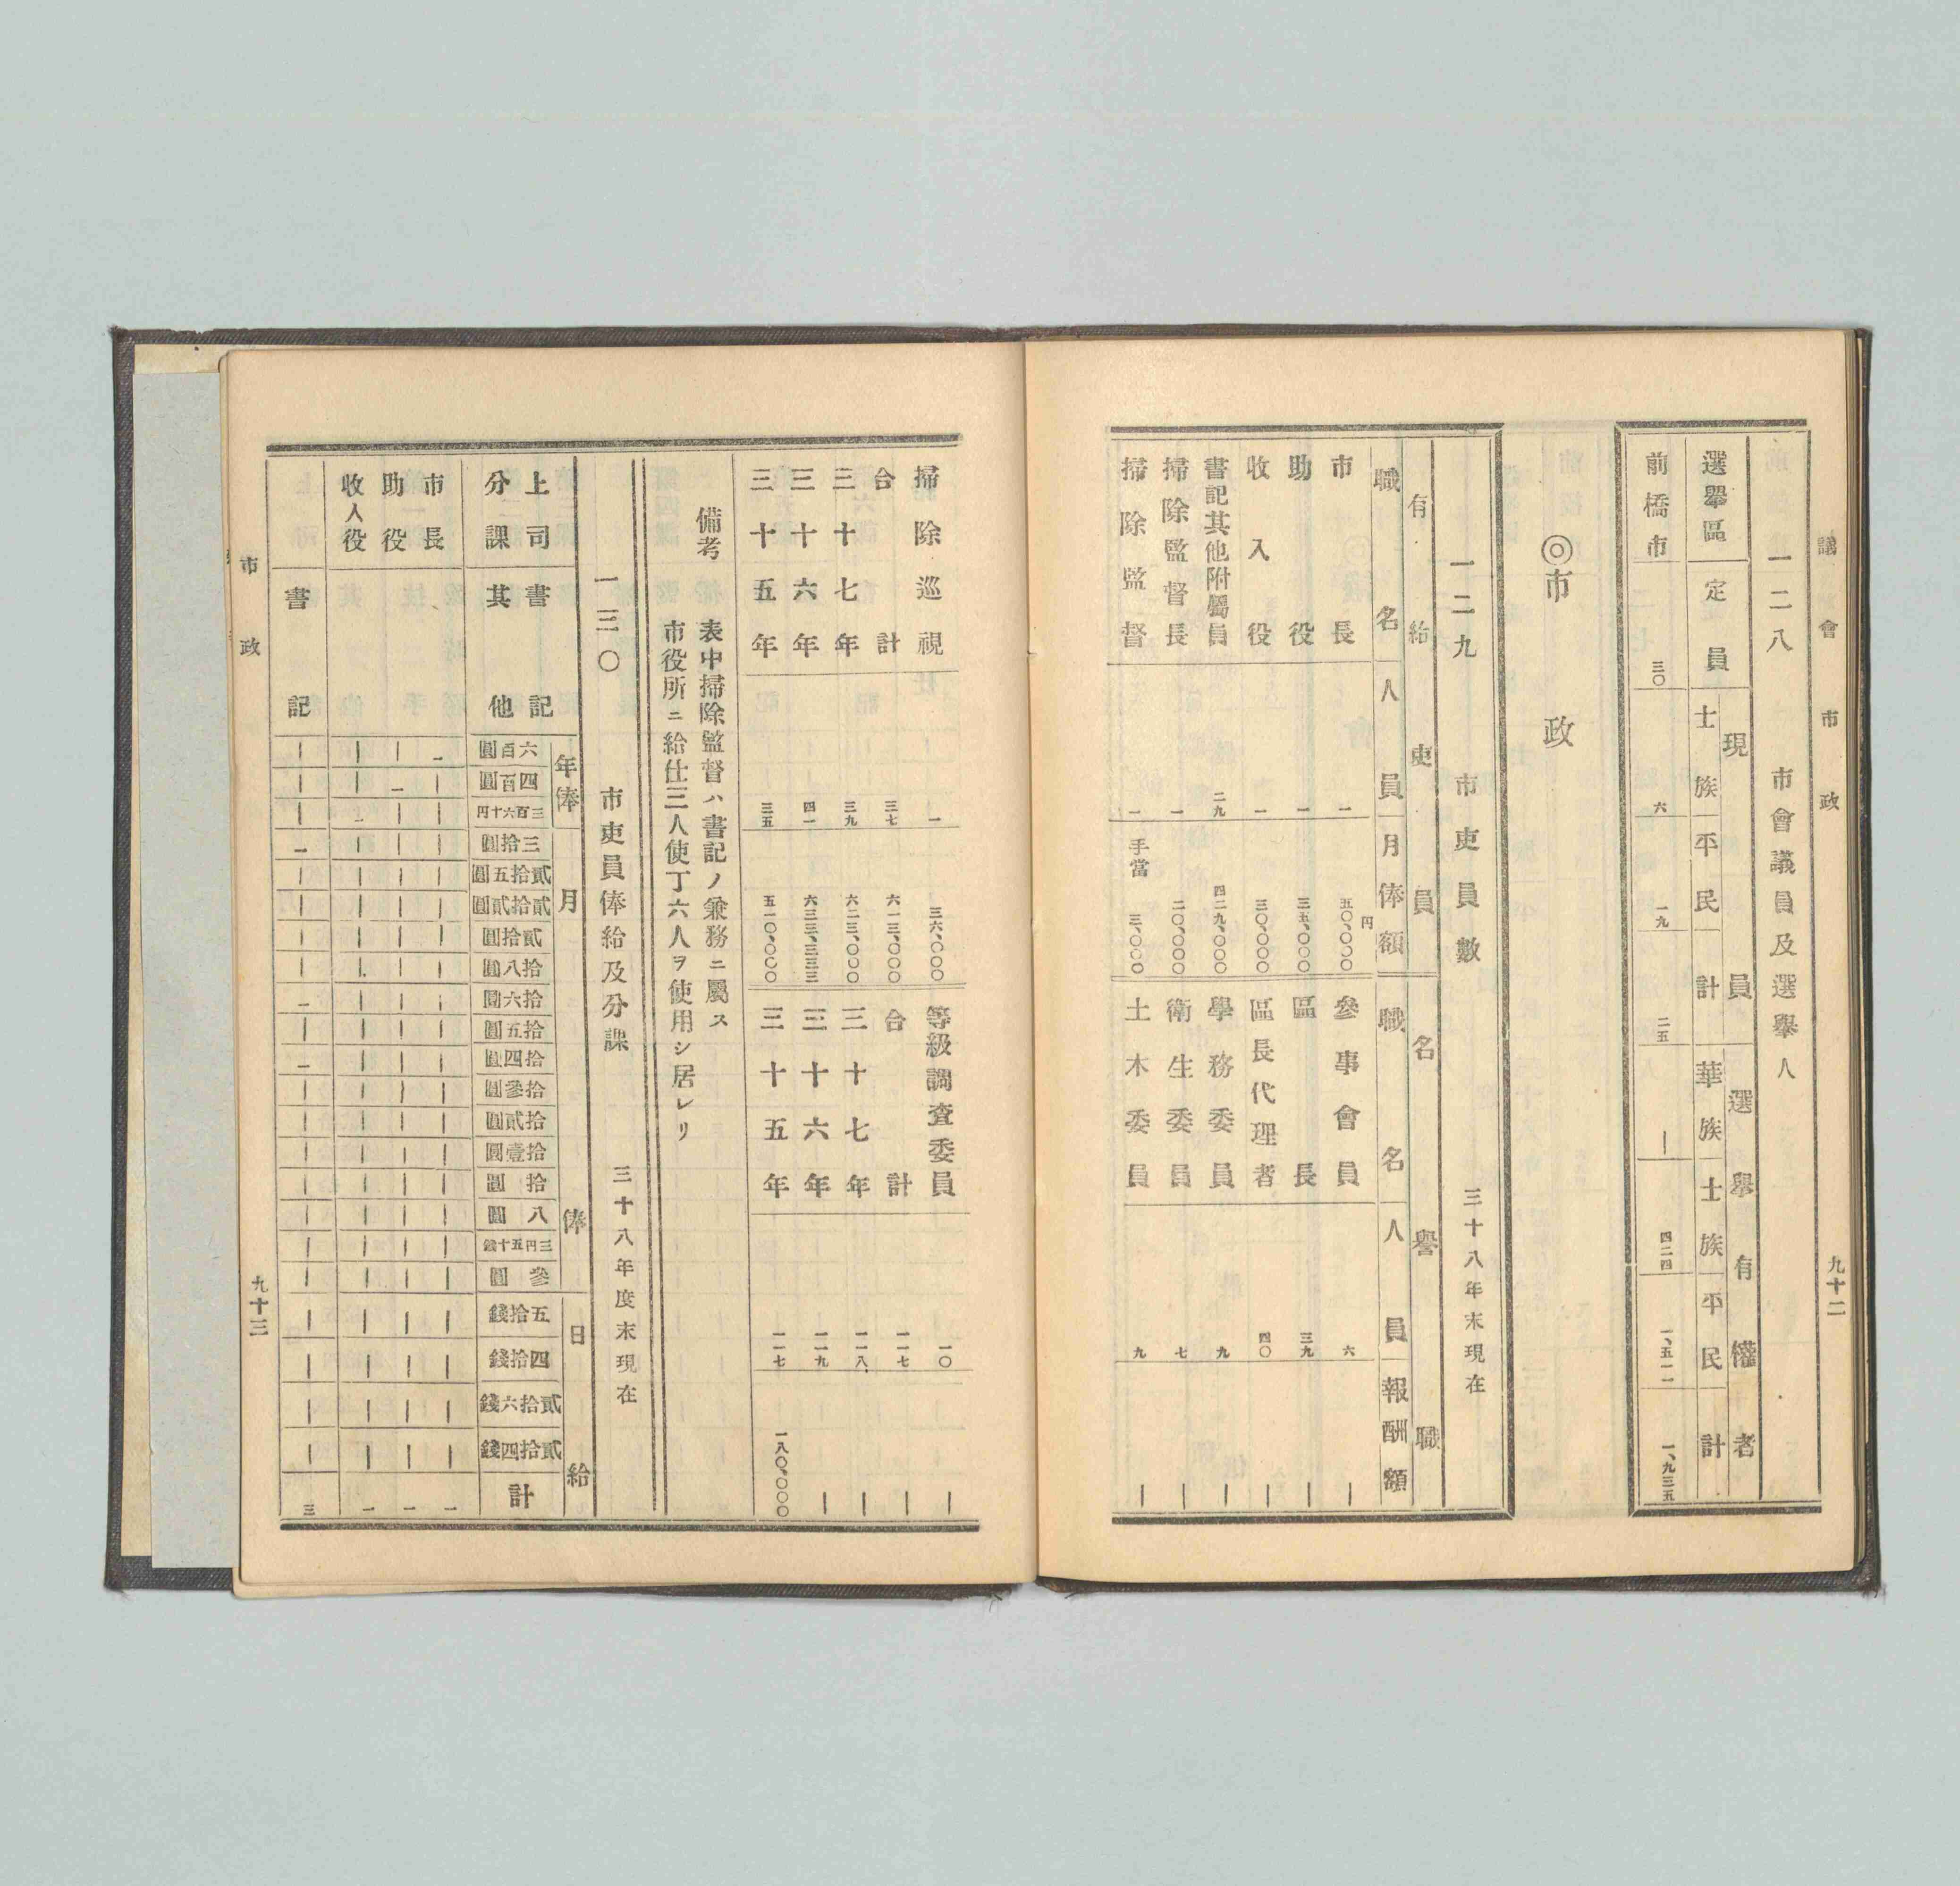 議會 市政 九十二
一二八 市會議員及選擧人
選擧區 定員 現員 選擧有權者
士族 平民 計 華族 士族 平民 計
前橋市 三〇 六 一九 二五 ｜ 四二四 一、五一一 一、九三五
◎市政
一二九 市吏員數 三十八年末現在
有給吏員 名譽職
職名 人員 月俸額 職名 人員 報酬額
市長 一 五〇、〇〇〇円 參事會員 六 ｜
助役 一 三五、〇〇〇 區長 三九 ｜
收入役 一 三〇、〇〇〇 區長代理者 四〇 ｜
書記其他附屬員 二九 四二九、〇〇〇 學務委員 九 ｜
掃除監督長 一 二〇、〇〇〇 衛生委員 七 ｜
掃除監督 一 手當 三、〇〇〇 土木委員 九 ｜
掃除巡視 一 三六、〇〇〇 等級調査委員 一〇 ｜
合計 三七 六一三、〇〇〇 合計 一一七 ｜
三十七年 三九 六二三、〇〇〇 三十七年 一一八 ｜
三十六年 四一 六三三、三三三 三十六年 一一九 ｜
三十五年 三五 五一〇、〇〇〇 三十五年 一一七 一八〇、〇〇〇
備考 表中掃除監督ハ書記ノ兼務ニ屬ス
市役所ニ給仕三人使丁六人ヲ使用シ居レリ
一三〇 市吏員俸給及分課 三十八年度末現在
年俸 月俸 日給
上司 書記
分課 其他 六百圓 四百圓 三百六十円 三拾圓 貳拾五圓 貳拾貳圓 貳拾圓 拾八圓 拾六圓 拾五圓 拾四圓 拾參圓 拾貳圓 拾壹圓 拾圓 八圓 三円五十錢 參圓 五拾錢 四拾錢 貳拾六錢 貳拾四錢 計
市長 一 ｜ ｜ ｜ ｜ ｜ ｜ ｜ ｜ ｜ ｜ ｜ ｜ ｜ ｜ ｜ ｜ ｜ ｜ ｜ ｜ ｜ 一
助役 ｜ 一 ｜ ｜ ｜ ｜ ｜ ｜ ｜ ｜ ｜ ｜ ｜ ｜ ｜ ｜ ｜ ｜ ｜ ｜ ｜ ｜ 一
收入役 ｜ ｜ 一 ｜ ｜ ｜ ｜ ｜ ｜ ｜ ｜ ｜ ｜ ｜ ｜ ｜ ｜ ｜ ｜ ｜ ｜ ｜ 一
書記 ｜ ｜ ｜ 一 ｜ ｜ ｜ ｜ 一 ｜ 一 ｜ ｜ ｜ ｜ ｜ ｜ ｜ ｜ ｜ ｜ ｜ 三
市政 九十三